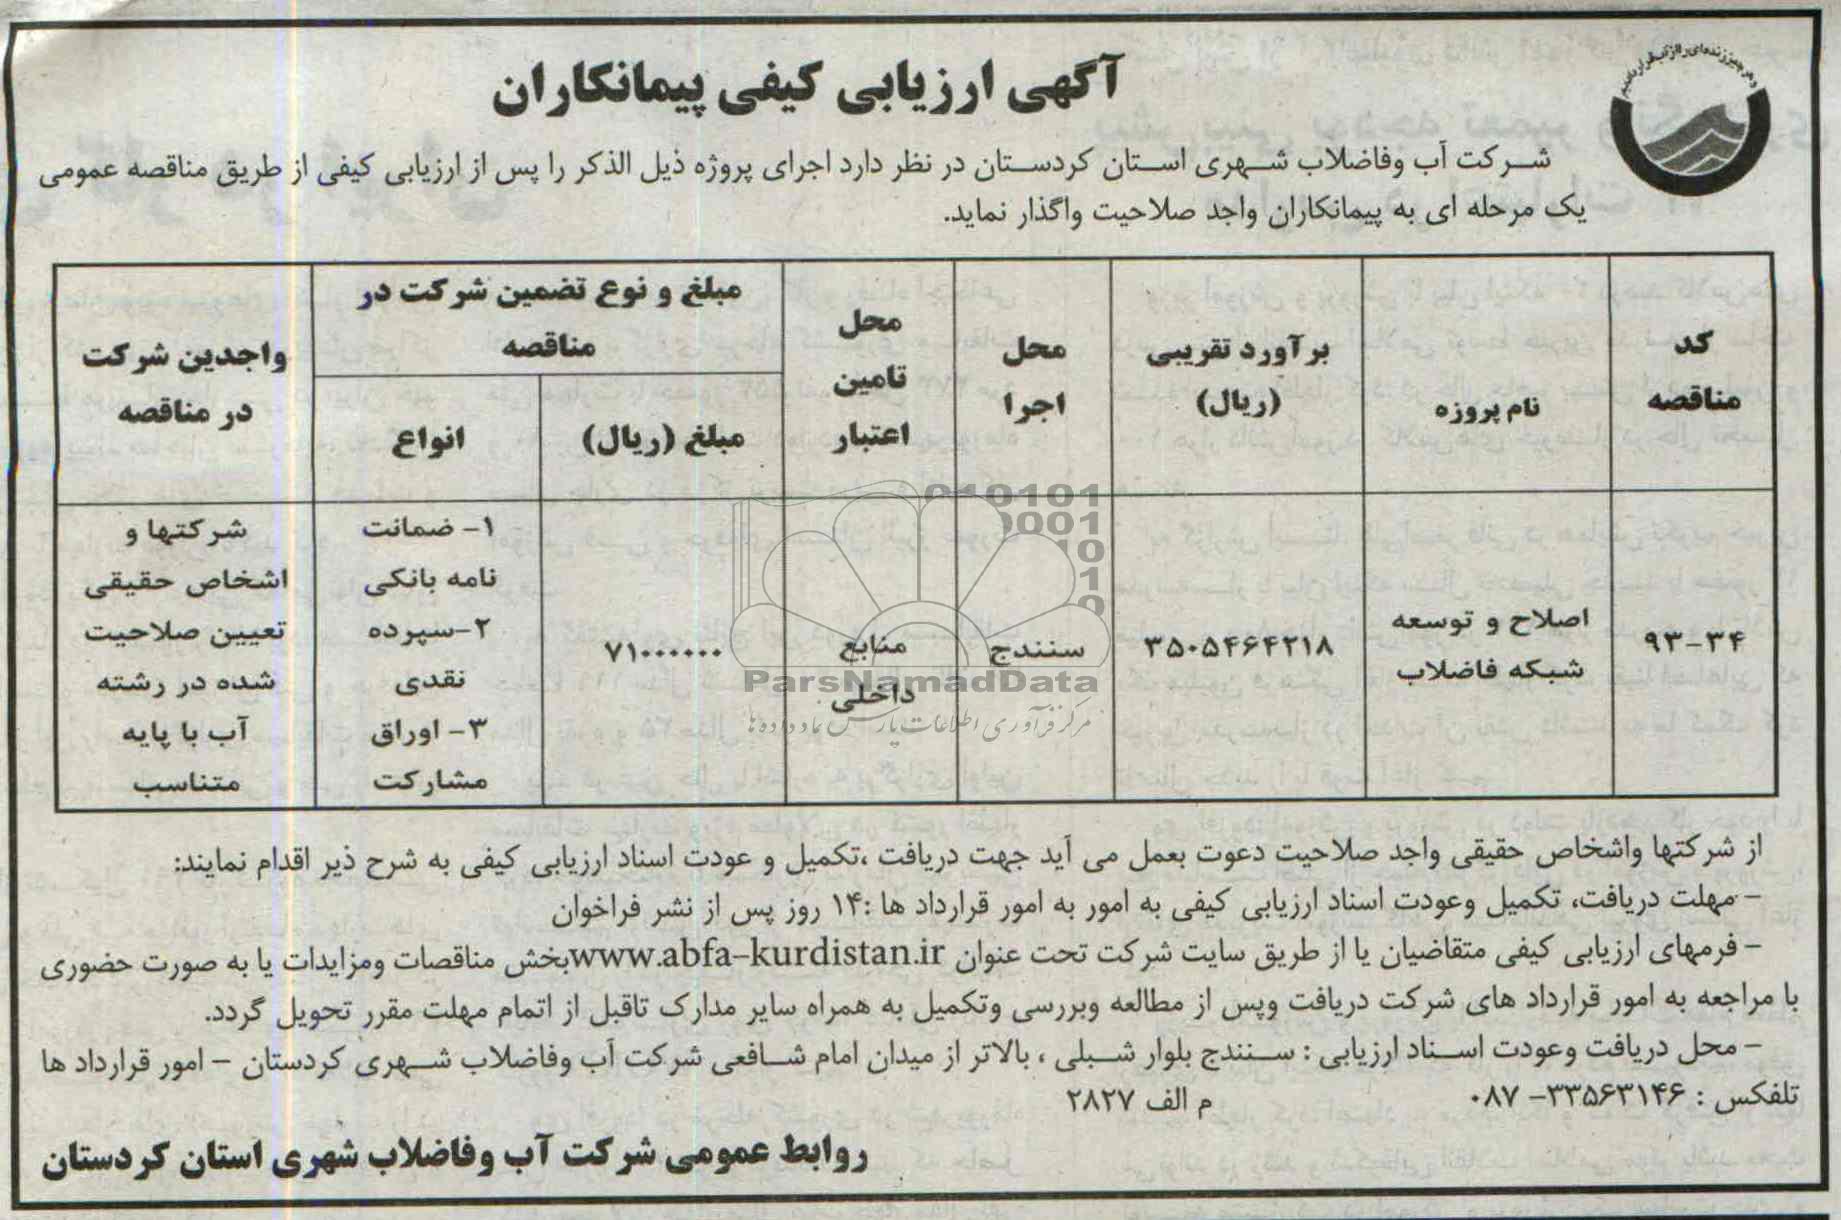 و هر چیز زنده‌ای را از آب قرار دادیم
آگهی ارزیابی کیفی پیمانکاران
شرکت آب وفاضلاب شهری استان کردستان در نظر دارد اجرای پروژه ذیل الذکر را پس از ارزیابی کیفی از طریق مناقصه عمومی
یک مرحله ای به پیمانکاران واجد صلاحیت واگذار نماید.
کد
مناقصه
نام پروزه
برآورد تقریبی
(ریال)
محل
اجرا
محل
تامین
اعتبار
مبلغ و نوع تضمین شرکت در
مناقصه
مبلغ (ریال)
انواع
واجدین شرکت
در مناقصه
۹۳-۳۴
اصلاح و توسعه
شبکه فاضلاب
۳۵۰۵۴۶۴۲۱۸
سنندج
منابع
داخلی
۷۱۰۰۰۰۰۰
۱- ضمانت
نامه بانکی
۲-سپرده
نقدی
۳- اوراق
مشارکت
شرکتها و
اشخاص حقیقی
تعیین صلاحیت
شده در رشته
آب با پایه
متناسب
ParsNamadData
مرکز فرآوری اطلاعات پارس نماد داده ها
از شرکتها واشخاص حقیقی واجد صلاحیت دعوت بعمل می آید جهت دریافت ،تکمیل و عودت اسناد ارزیابی کیفی به شرح ذیر اقدام نمایند:
- مهلت دریافت، تکمیل وعودت اسناد ارزیابی کیفی به امور به امور قرارداد ها :۱۴ روز پس از نشر فراخوان
- فرمهای ارزیابی کیفی متقاضیان یا از طریق سایت شرکت تحت عنوان www.abfa-kurdistan.ir بخش مناقصات ومزایدات یا به صورت حضوری
با مراجعه به امور قرارداد های شرکت دریافت وپس از مطالعه وبررسی وتکمیل به همراه سایر مدارک تاقبل از اتمام مهلت مقرر تحویل گردد.
- محل دریافت وعودت اسناد ارزیابی : سنندج بلوار شبلی ، بالاتر از میدان امام شافعی شرکت آب وفاضلاب شهری کردستان - امور قرارداد ها
تلفکس : ۳۳۵۶۳۱۴۶- ۰۸۷ م الف ۲۸۲۷
روابط عمومی شرکت آب وفاضلاب شهری استان کردستان